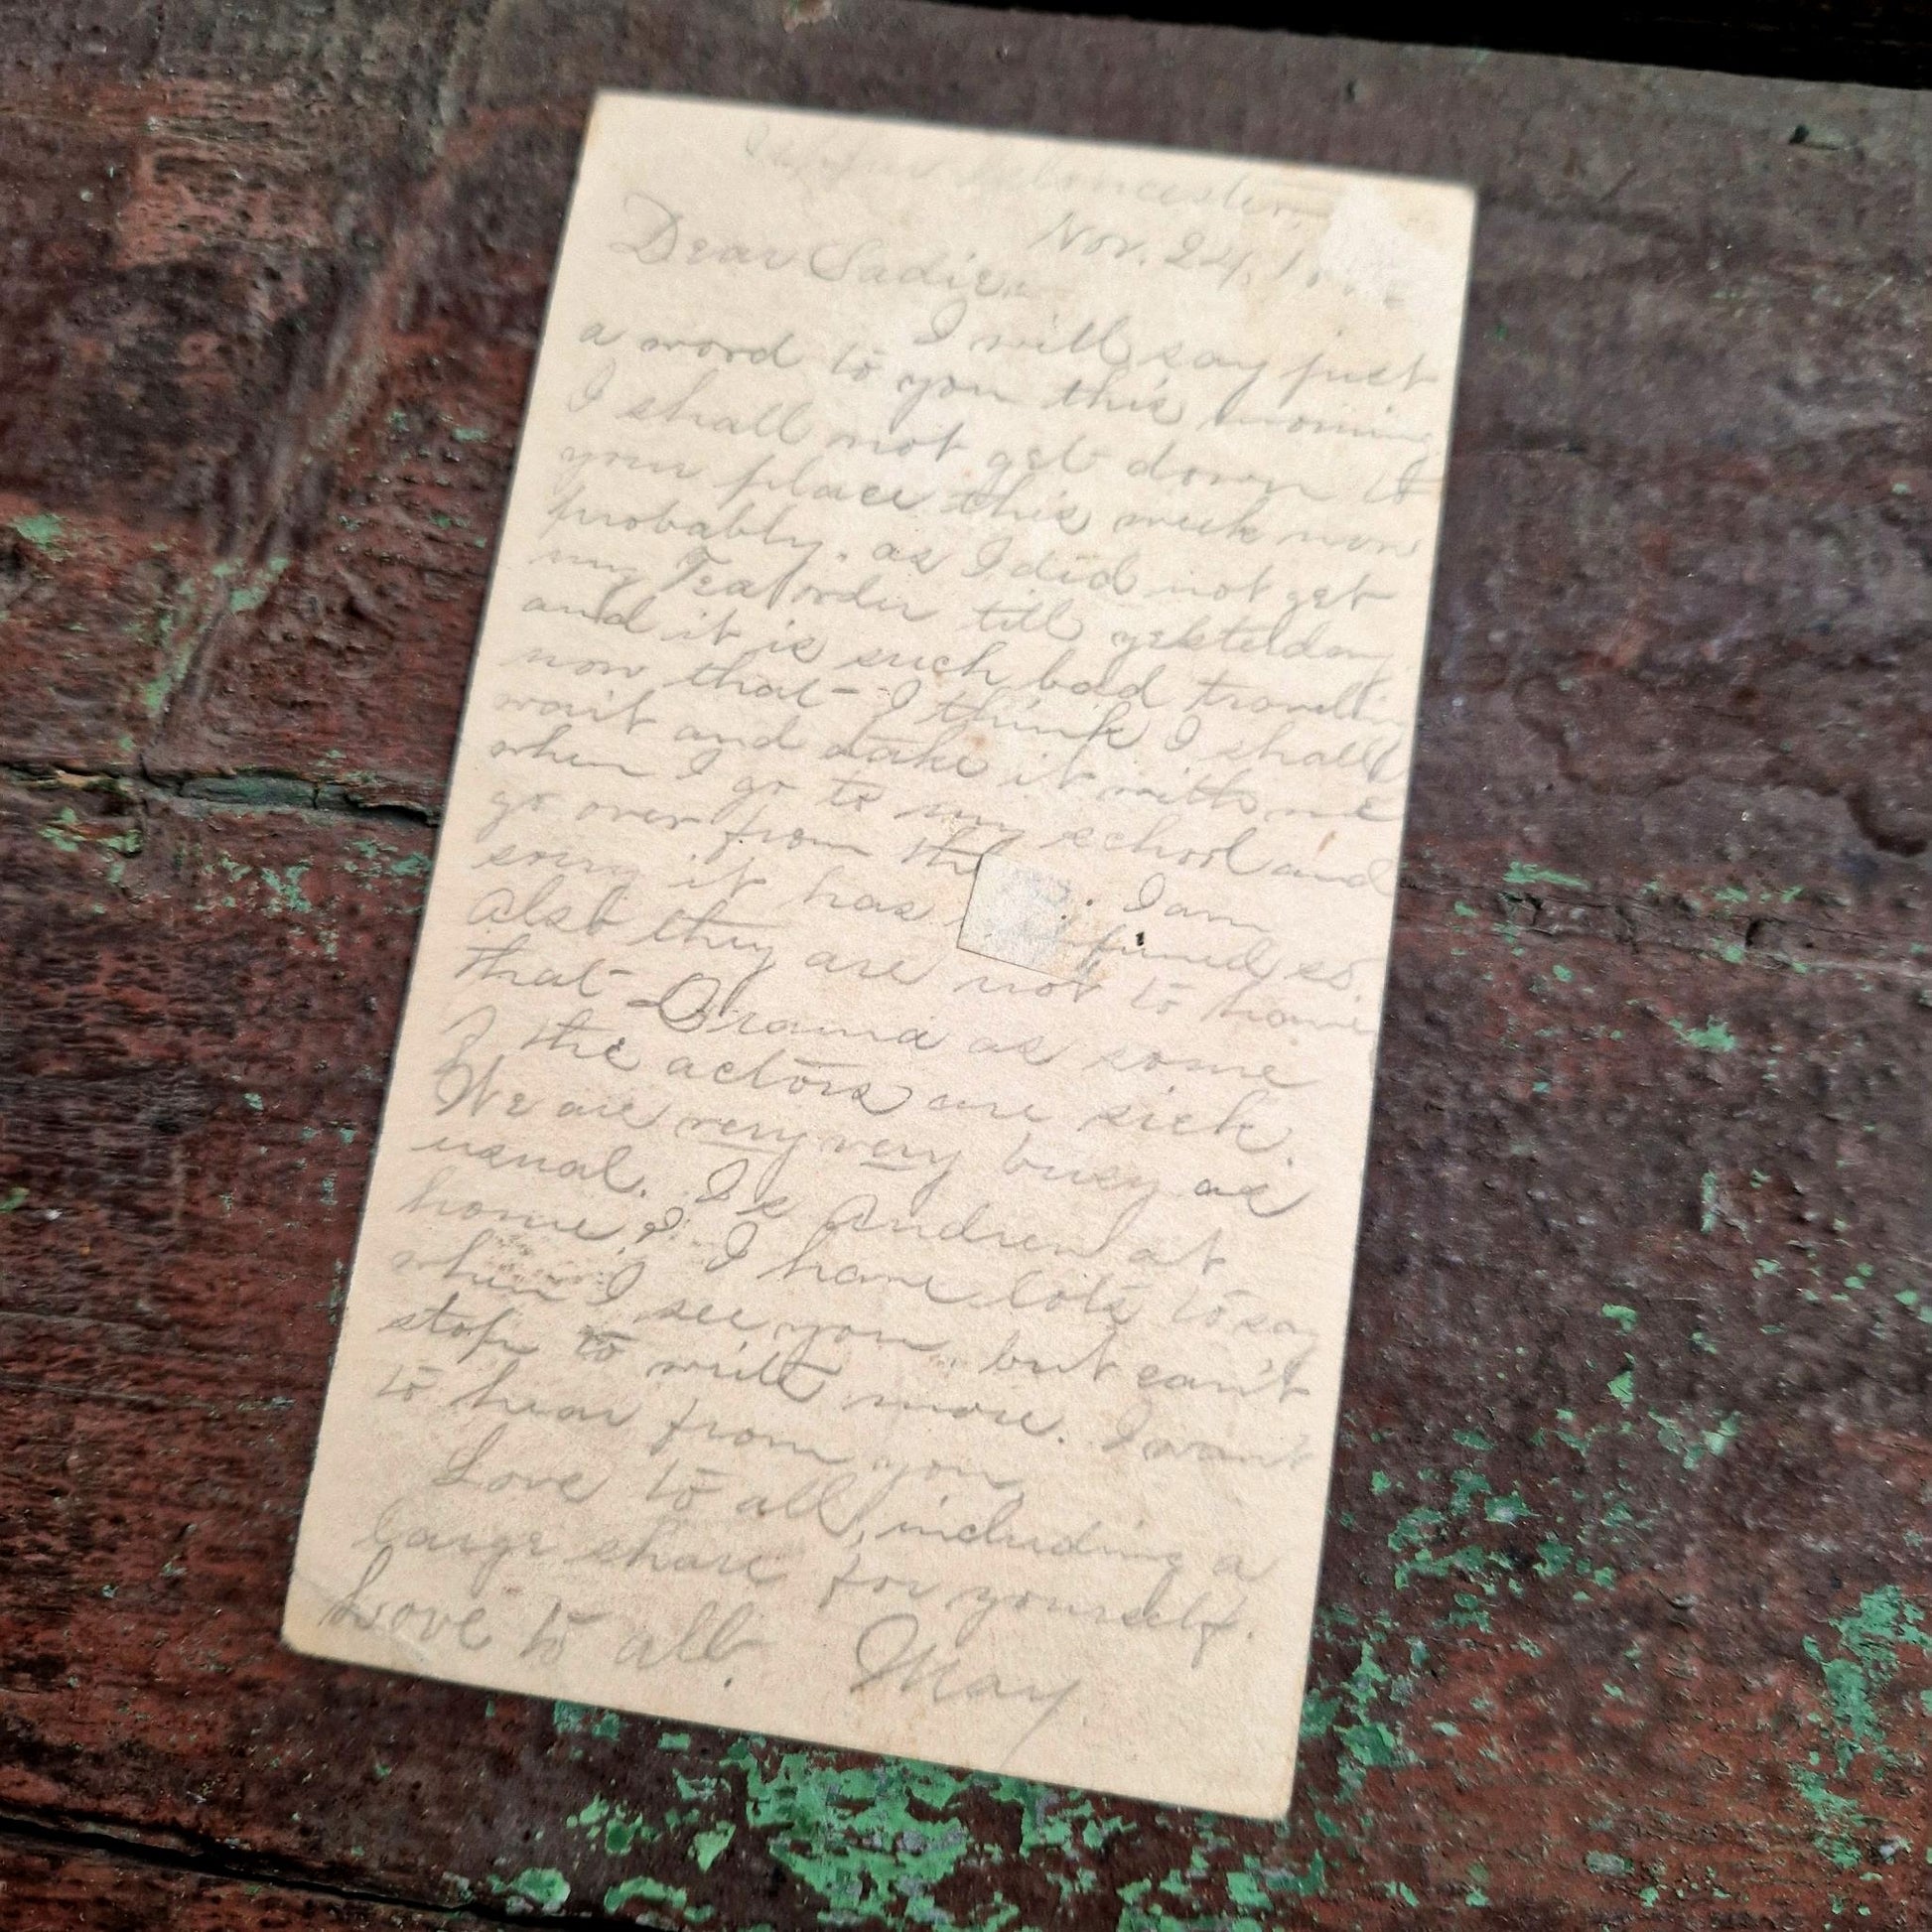 Upper Gloucester,
Nov. 24, 1
Dear Sadie:
I will say just
a word to you this morning
I shall not get down to
your place this week now
probably, as I did not get
my Tea order till yesterday
and it is such bad traveling
now that I think I shall
wait and take it with me
when I go to my school and
go over from I am
sorry it has so.
Also they are not to have
that Drama as some
of the actors are sick.
We are very very busy as
usual. Is Andrew at
home? I have lots to say
when I see you, but can't
stop to write more. I want
to hear from you
Love to all, including a
large share for yourself.
Love to all. May